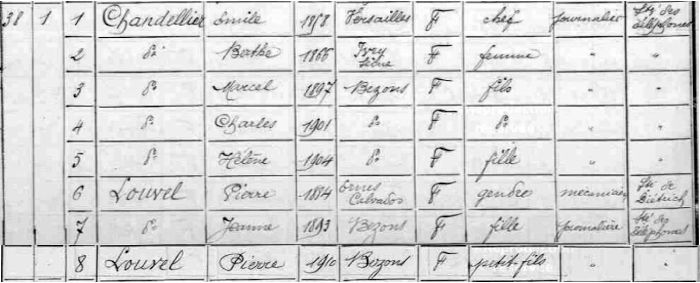 38 1 1 Chandellier Emile 1868 Versailles F chef journalier Sté des Téléphones
2 do Berthe 1866 Ivry Seine F femme "
3 do Marcel 1897 Bezons F fils " "
4 do Charles 1901 do F do " "
5 do Hélène 1904 do F fille " "
6 Louvel Pierre 1884 Calvados F gendre mécanicien Sté de Dietrich
7 do Jeanne 1893 Bezons F fille journalière Sté des Téléphones
8 Louvel Pierre 1910 Bezons F petit fils " "